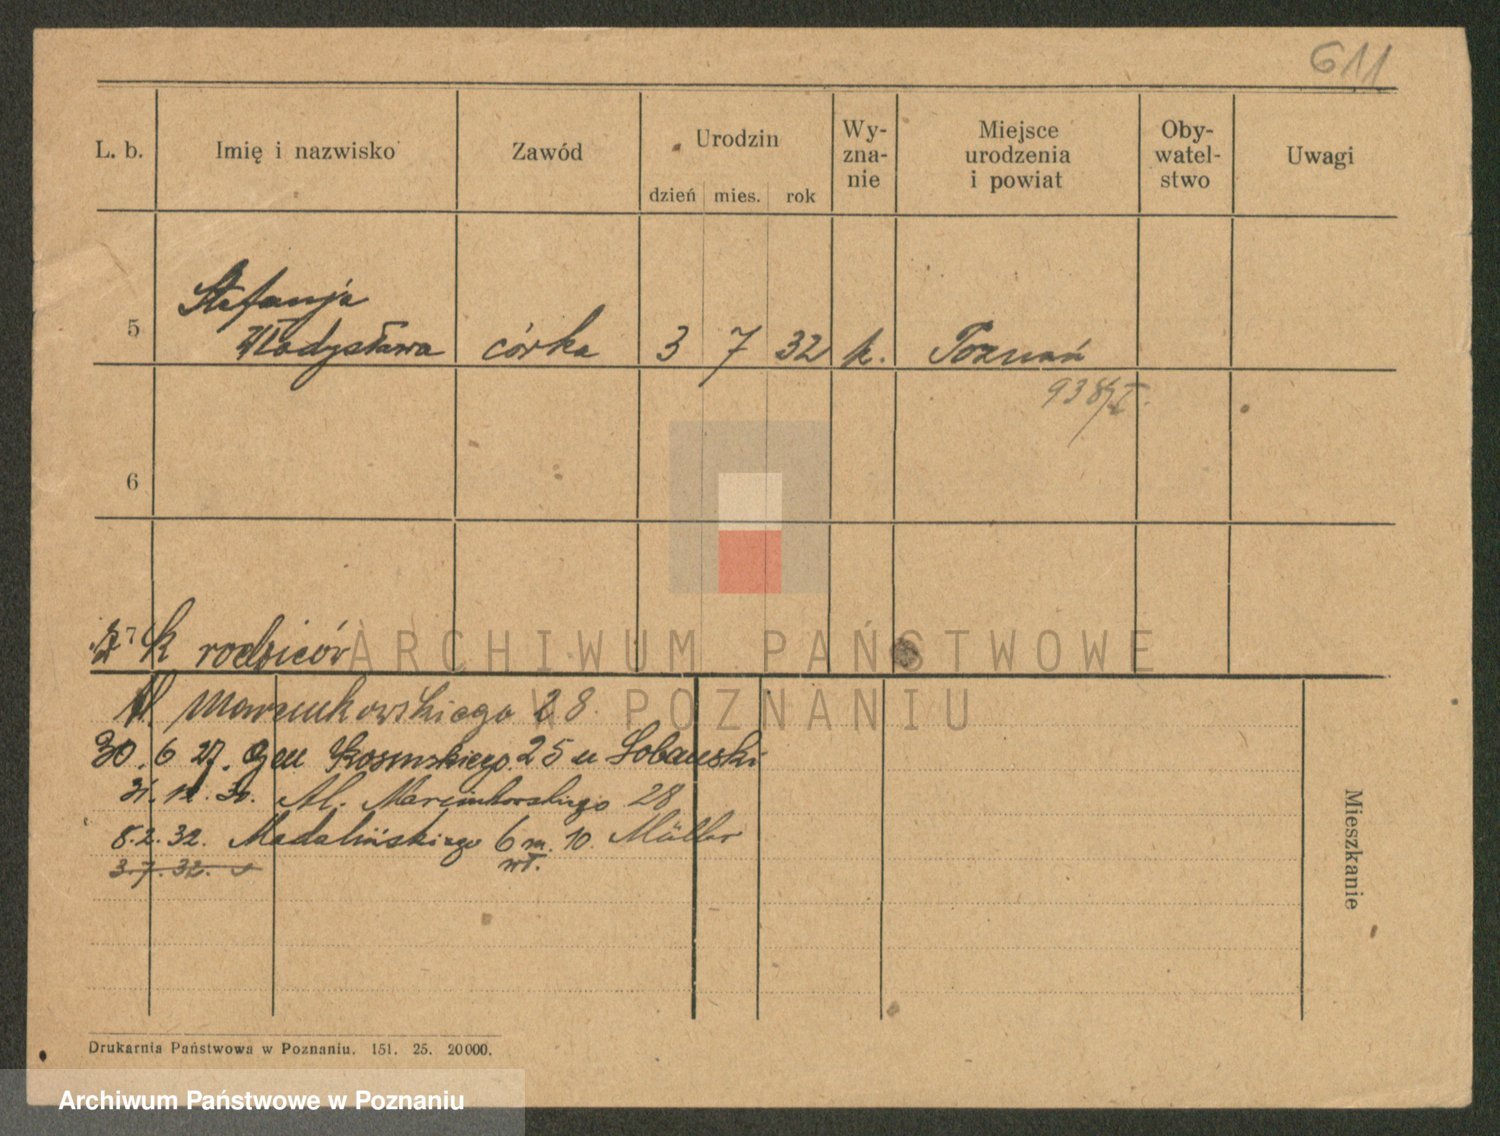 611
L. b. Imię i nazwisko Zawód Urodzin Wy-zna-nie Miejsce urodzenia i powiat Oby-watel-stwo Uwagi
dzień mies. rok
Stefanja
5 Władysława córka 3 7 32 k. Poznań
938/I.
6
7 k rodziców
Al Marcinkowskiego 28.
30. 6 27. Gen Kosinskiego 25 u Lobanski
31. 12. 30. Al. Marcinkowskiego 28
8. 2. 32. Madalińskiego 6 m. 10. Müller
3. 7. 32. wł.
Mieszkanie
Drukarnia Państwowa w Poznaniu. 151. 25. 20000.
ARCHIWUM PAŃSTWOWE
W POZNANIU
Archiwum Państwowe w Poznaniu